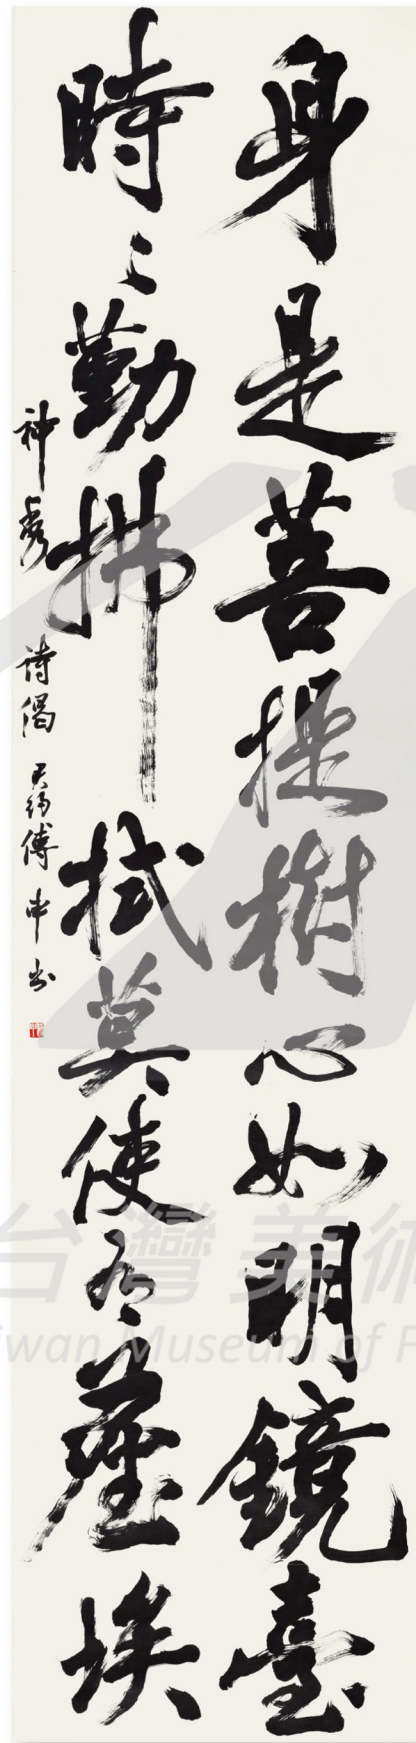 身是菩提樹心如明鏡臺
時〻勤拂拭莫使有塵埃
神秀詩偈 君約傅申書
台灣美術
iwan Museum of F